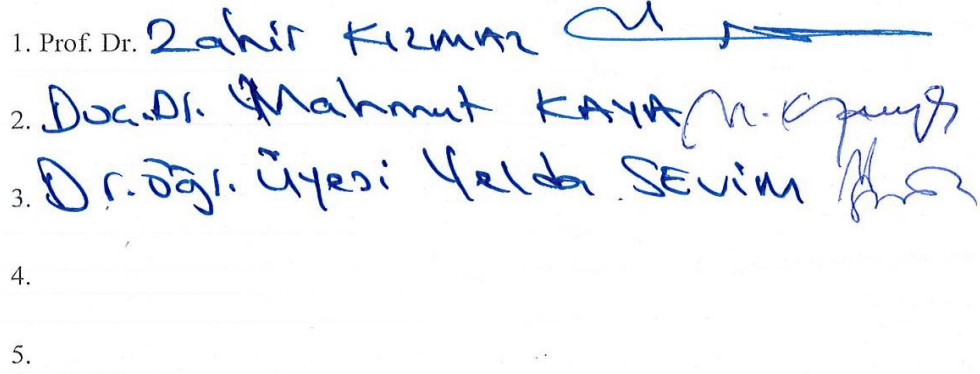 1. Prof. Dr. Zahir KIZMAZ
2. Doç. Dr. Mahmut KAYA
3. Dr. Öğr. Üyesi Yelda SEVİM
4.
5.